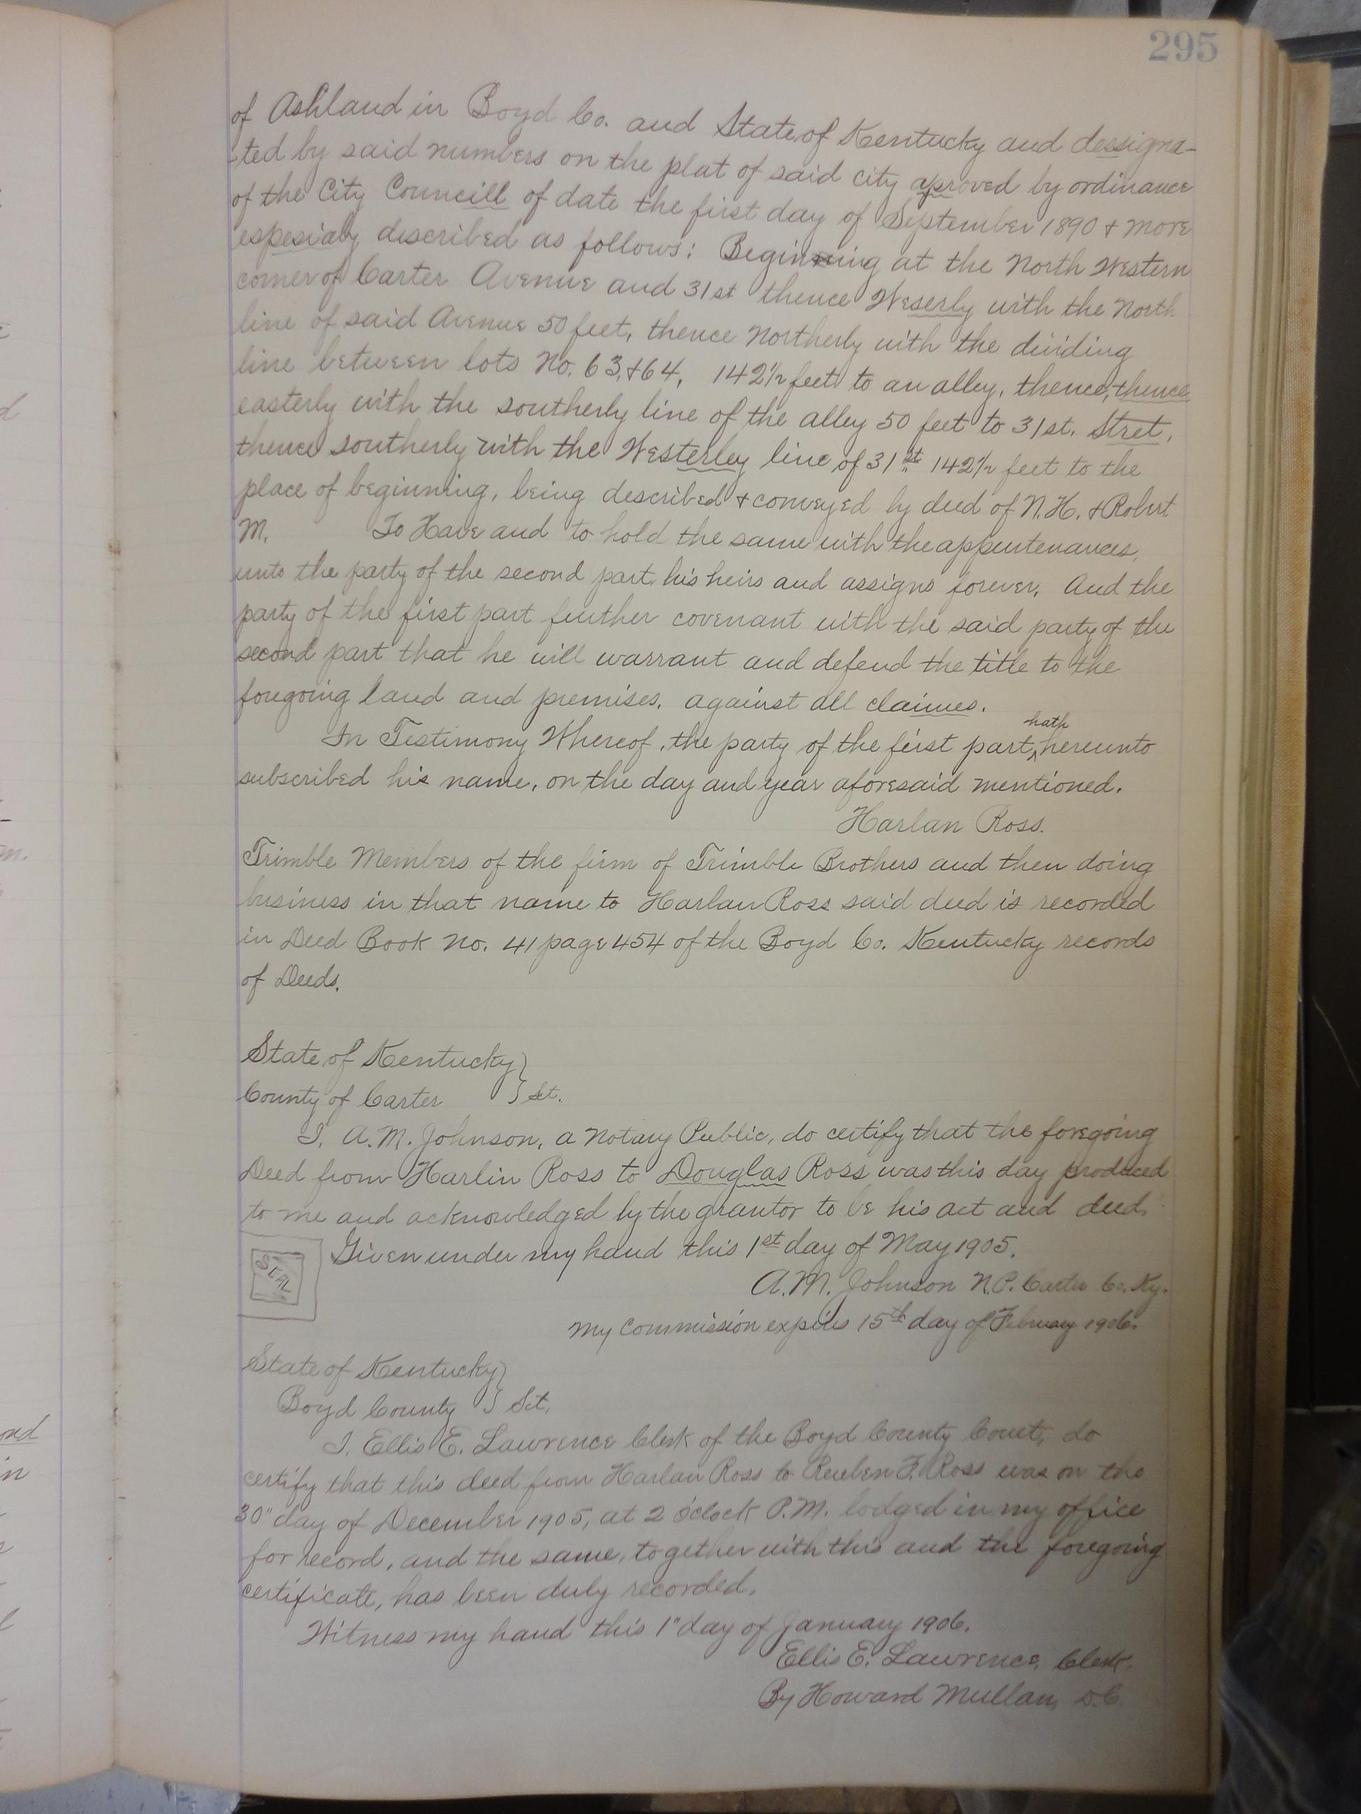 295
of Ashland in Boyd Co. and State of Kentucky and dessigna-
-ted by said numbers on the plat of said city aproved by ordinance
of the City Councill of date the first day of September 1890 & more
espesialy described as follows: Beginning at the North Western
corner of Carter Avenue and 31st thence Weserly with the North
line of said Avenue 50 feet, thence Northerly with the dividing
line between lots No. 63, & 64, 142 1/2 feet to an alley, thence, thence
easterly with the southerly line of the alley 50 feet to 31st. Stret,
thence southerly with the Westerley line of 31st 142 1/2 feet to the
place of beginning, being described & conveyed by deed of N.H. & Robert
M. To Have and to hold the same with the appentenances,
unto the party of the second part, his heirs and assigns forever. And the
party of the first part further covenant with the said party of the
second part that he will warrant and defend the title to the
foregoing land and premises, against all claimes.
In Testimony Whereof, the party of the first part, hath hereunto
subscribed his name, on the day and year aforesaid mentioned.
Harlan Ross.
Trimble Members of the firm of Trimble Brothers and then doing
business in that name to Harlan Ross said deed is recorded
in Deed Book No. 41 page 454 of the Boyd Co. Kentucky records
of Deeds.
State of Kentucky }
County of Carter } Sct.
I, A.M. Johnson, a Notary Public, do certify that the foregoing
Deed from Harlin Ross to Douglas Ross was this day produced
to me and acknowledged by the grantor to be his act and deed.
Given under my hand this 1st day of May 1905.
SEAL
A.M. Johnson N.P. Carter Co. Ky.
My Commission expires 15th day of February 1906.
State of Kentucky }
Boyd County } Sct.
I, Ellis E. Lawrence Clerk of the Boyd County Court, do
certify that this deed from Harlan Ross to Reuben F. Ross was on the
30" day of December 1905, at 2 o'clock P.M. lodged in my office
for record, and the same, together with this and the foregoing
certificate, has been duly recorded.
Witness my hand this 1" day of January 1906.
Ellis E. Lawrence, Clerk.
By Howard Mullan, D.C.